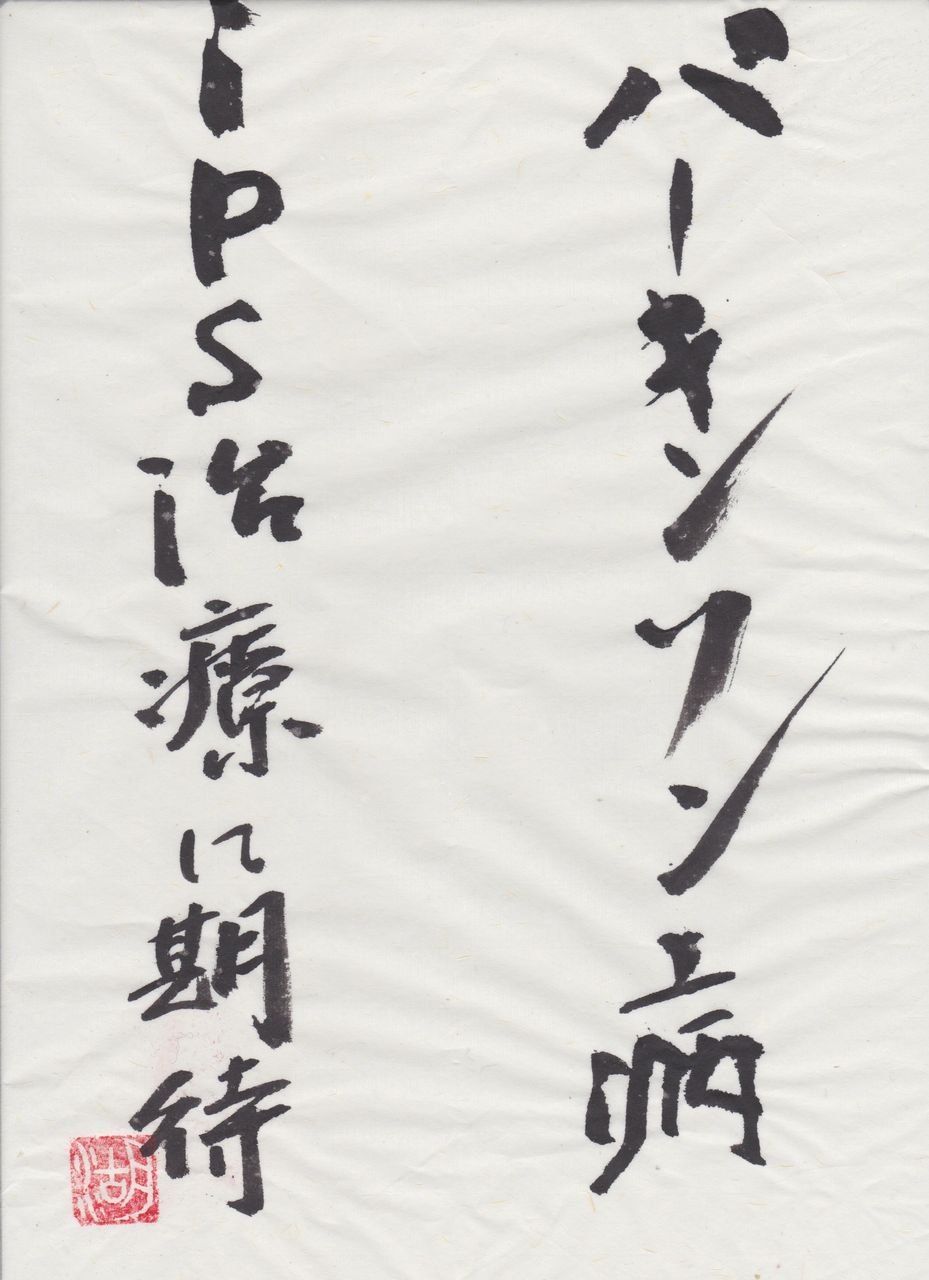 パーキンソン病
iPS治療に期待
湖